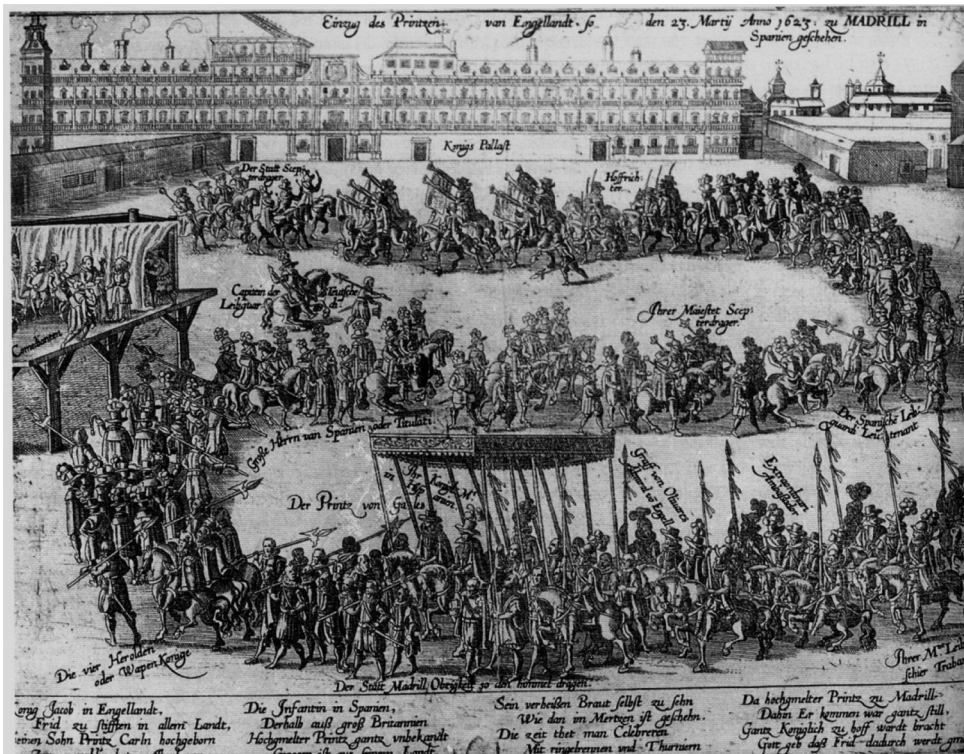 Einzug des Printzen van Engellandt. so den 23. Martij Anno 1623. zu MADRILL in
Spanien geschehen.
Konigs Pallast
Der Statt Scep-
terdrager.
Hoffrich-
ter.
Capitein der Teutsche
Leibguar
Ihrer Maiestet Scep-
terdrager.
Große Herren van Spanien oder Titulati
Der Spanische Leib
quardi Leutenant
Der Printz von Galles
in
Graff von Olivares
Die vier Herolden
oder Wapen Konige
Der Statt Madrill Obrigkeit so den hommel dragen.
Ihrer Mtt Leib
schier Traban
Konig Jacob in Engellandt,
Frid zu stifften in allem Landt,
Seinen Sohn Printz Carln hochgeborn
Die Infantin in Spanien,
Derhalb auß groß Britannien
Hochgmelter Printz gantz unbekandt
Sein verheißen Braut selbst zu sehn
Wie dan im Mertzen ist geschehn.
Die zeit thet man Celebreren
Mit ringebrennen und Thurniern
Da hochgmelter Printz zu Madrill
Dahin Er kommen war gantz still,
Gantz Koniglich zu hoff wardt bracht
Gott geb daß Frid dadurch werdt gma